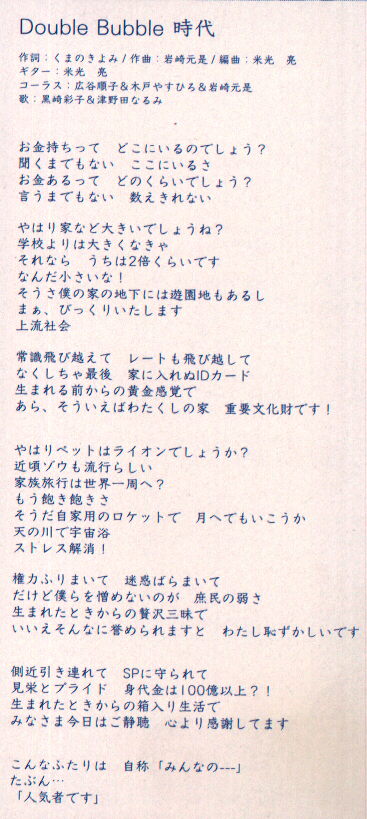 Double Bubble 時代
作詞：くまのきよみ / 作曲：岩崎元是 / 編曲：米光　亮
ギター：米光　亮
コーラス：広谷順子＆木戸やすひろ＆岩崎元是
歌：黒崎彩子＆津野田なるみ
お金持ちって　どこにいるのでしょう？
聞くまでもない　ここにいるさ
お金あるって　どのくらいでしょう？
言うまでもない　数えきれない
やはり家など大きいでしょうね？
学校よりは大きくなきゃ
それなら　うちは2倍くらいです
なんだ小さいな！
そうさ僕の家の地下には遊園地もあるし
まぁ、びっくりいたします
上流社会
常識飛び越えて　レートも飛び越して
なくしちゃ最後　家に入れぬIDカード
生まれる前からの黄金感覚で
あら、そういえばわたくしの家　重要文化財です！
やはりペットはライオンでしょうか？
近頃ゾウも流行らしい
家族旅行は世界一周へ？
もう飽き飽きさ
そうだ自家用のロケットで　月へでもいこうか
天の川で宇宙浴
ストレス解消！
権力ふりまいて　迷惑ばらまいて
だけど僕らを憎めないのが　庶民の弱さ
生まれたときからの贅沢三昧で
いいえそんなに誉められますと　わたし恥ずかしいです
側近引き連れて　SPに守られて
見栄とプライド　身代金は100億以上？！
生まれたときからの箱入り生活で
みなさま今日はご静聴　心より感謝してます
こんなふたりは　自称「みんなの---」
たぶん…
「人気者です」